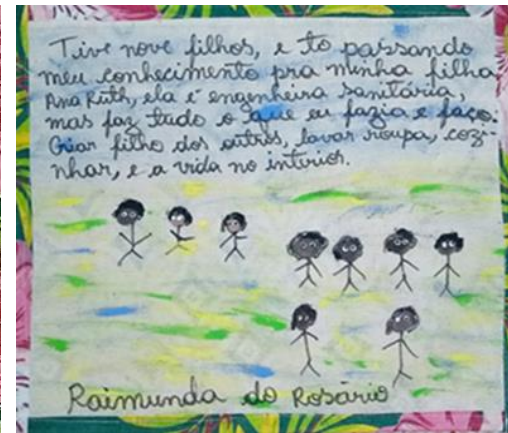 Tive nove filhos, e to passando
meu conhecimento pra minha filha
Ana Ruth, ela é engenheira sanitária,
mas faz tudo o que eu fazia e faço.
Criar filho dos outros, lavar roupa, cozi-
nhar, e a vida no interior.
Raimunda do Rosário